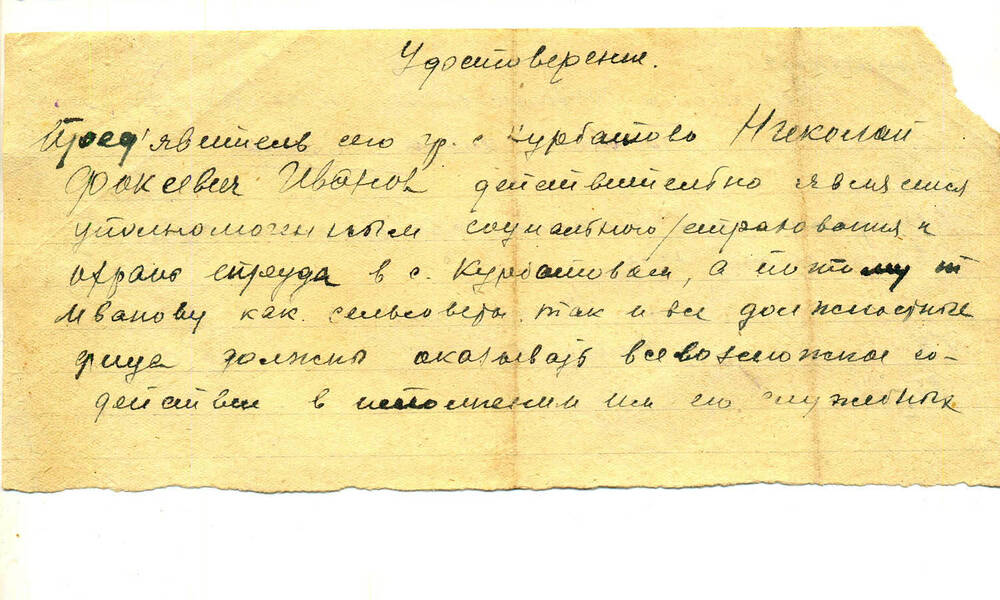 Удостоверение.
Пред'явитель сего гр. с Курбатово Николай
Фокеевич Иванов действительно является
уполномоченным социального/страхования и
охраны труда в с. Курбатовам, а потому т
Иванову как сельсоветы так и все должностные
лица должны оказывать всевозможное со-
действие в исполнении им его служебных